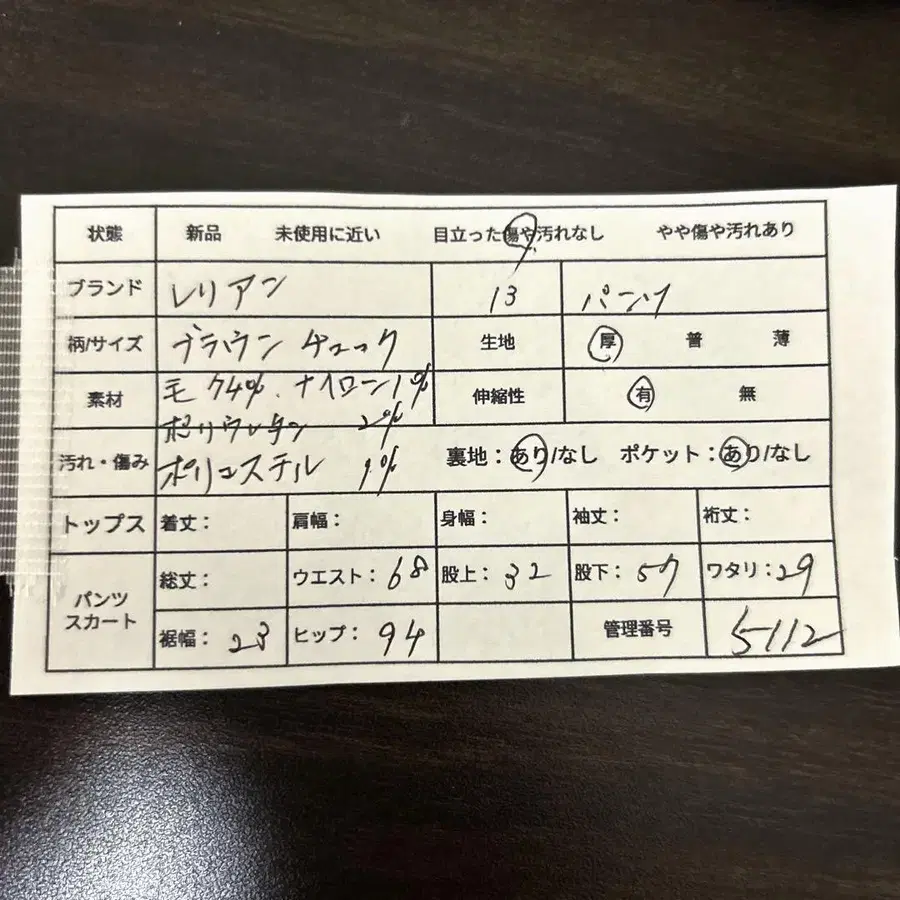 状態 新品 未使用に近い 目立った傷や汚れなし やや傷や汚れあり
ブランド レリアン 13 パンツ
柄/サイズ ブラウン チェック 生地 厚 普 薄
素材 毛 ナイロン1% 伸縮性 有 無
ポリウレタン 2%
汚れ・傷み ポリエステル 1% 裏地：あり/なし ポケット：あり/なし
トップス 着丈： 肩幅： 身幅： 袖丈： 裄丈：
パンツ スカート 総丈： ウエスト：68 股上：32 股下：57 ワタリ：29
裾幅：23 ヒップ：94 管理番号 5112